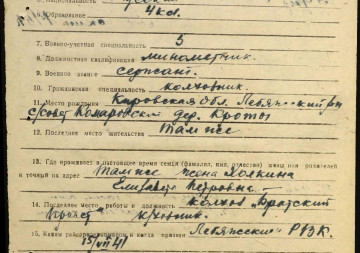 6. Образование 4 кл.
7. Военно-учетная специальность 5
8. Должностная квалификация минометчик.
9. Военное звание сержант.
10. Гражданская специальность колхозник.
11. Место рождения Кировская обл. Лебяжский р-н
с/совет дер. Кроты
12. Последнее место жительства Там же
13. Где проживает в настоящее время семья (фамилия, имя, отчество) жены или родителей
и точный адрес Там же жена
Елизавета Петровна
14. Последнее место работы и должность колхоз "Братский
колхозник.
15. Каким райвоенкоматом и когда призван Лебяжским РВК.
15/VII 41